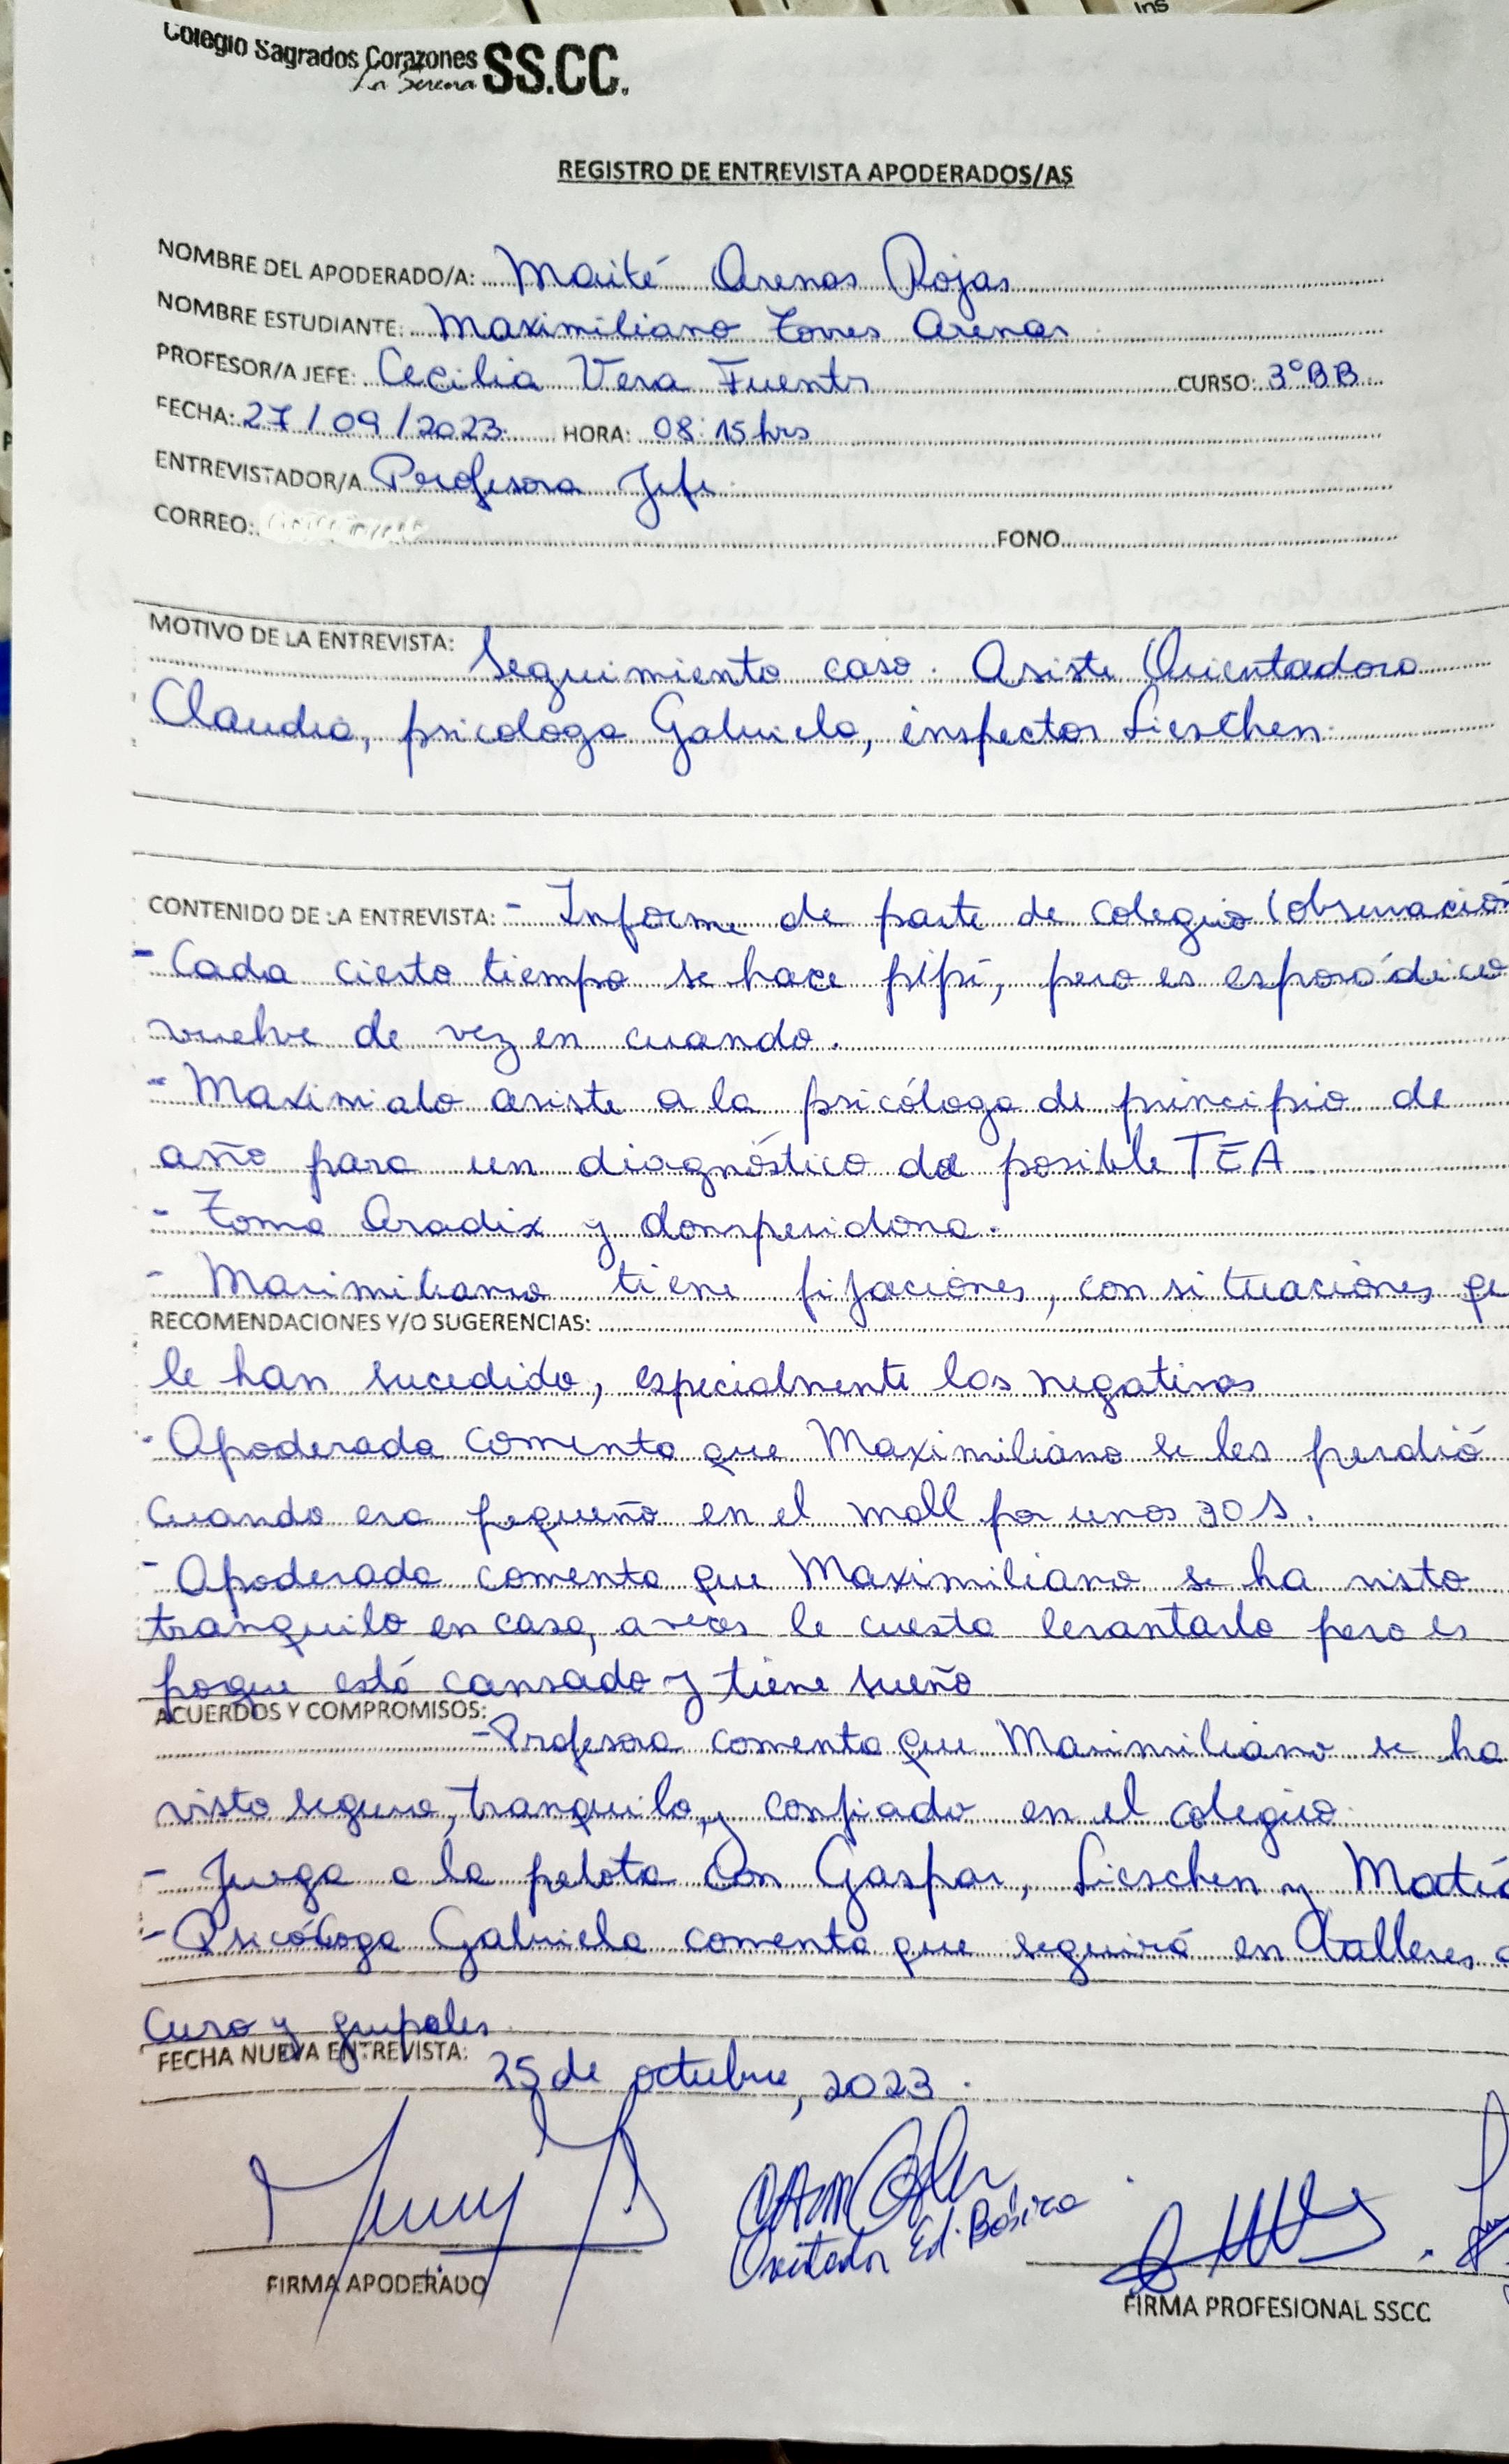 Ins
Colegio Sagrados Corazones SS.CC.
La Serena
REGISTRO DE ENTREVISTA APODERADOS/AS
NOMBRE DEL APODERADO/A: Maité Arenas Rojas
NOMBRE ESTUDIANTE: Maximiliano Torres Arenas
PROFESOR/A JEFE: Cecilia Vera Fuentes CURSO: 3°BB
FECHA: 27/09/2023 HORA: 08:15 hrs
ENTREVISTADOR/A Profesora Jefe
CORREO: FONO
MOTIVO DE LA ENTREVISTA: Seguimiento caso. Asiste Orientadora
Claudia, psicóloga Gabriela, inspector Lieschen.
CONTENIDO DE LA ENTREVISTA: - Informe de parte de colegio (observación
- Cada cierto tiempo se hace pipí, pero es esporádico
vuelve de vez en cuando.
- Maximialo asiste a la psicóloga de principio de
año para un diagnóstico de posible TEA
- Toma Aradix y domperidona.
- Maximiliano tiene fijaciones, con situaciones que
RECOMENDACIONES Y/O SUGERENCIAS:
le han sucedido, especialmente las negativas
- Apoderada comenta que Maximiliano se les perdió
cuando era pequeño en el mall por unos 30 s.
- Apoderada comenta que Maximiliano se ha visto
tranquilo en casa, a veces le cuesta levantarlo pero es
poque está cansado y tiene sueño
ACUERDOS Y COMPROMISOS:
- Profesora comenta que Maximiliano se ha
visto seguro, tranquilo, y confiado en el colegio.
- Juega a la pelota con Gaspar, Lieschen y Matía
- Psicóloga Gabriela comenta que seguirá en talleres
curso y grupales
FECHA NUEVA ENTREVISTA: 25 de octubre, 2023.
Ed. Básica
FIRMA APODERADO
FIRMA PROFESIONAL SSCC